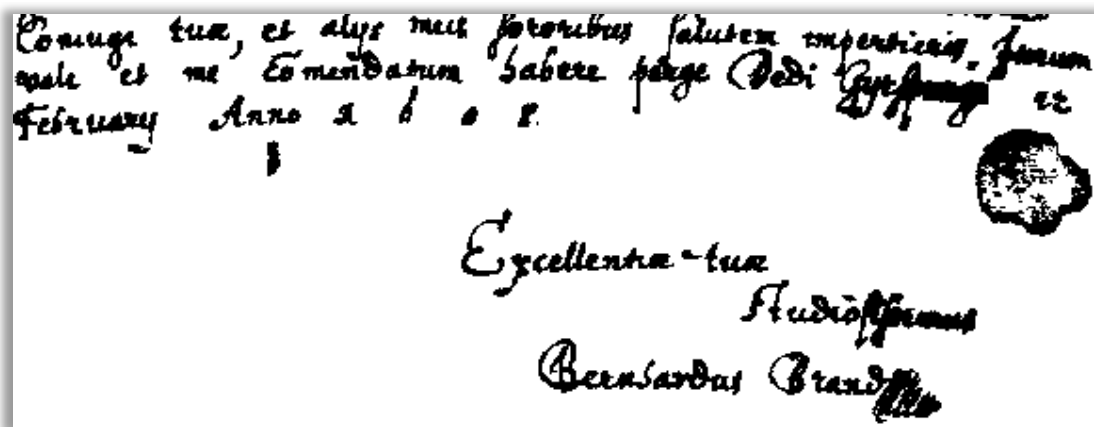 Coniugi tuæ, et alijs meis sororibus salutem impertieris,
vale et me Comendatum habere perge Dedi
February Anno 1 6 0 8.
Excellentiæ tuæ
Studiosissimus
Bernhardus Brand